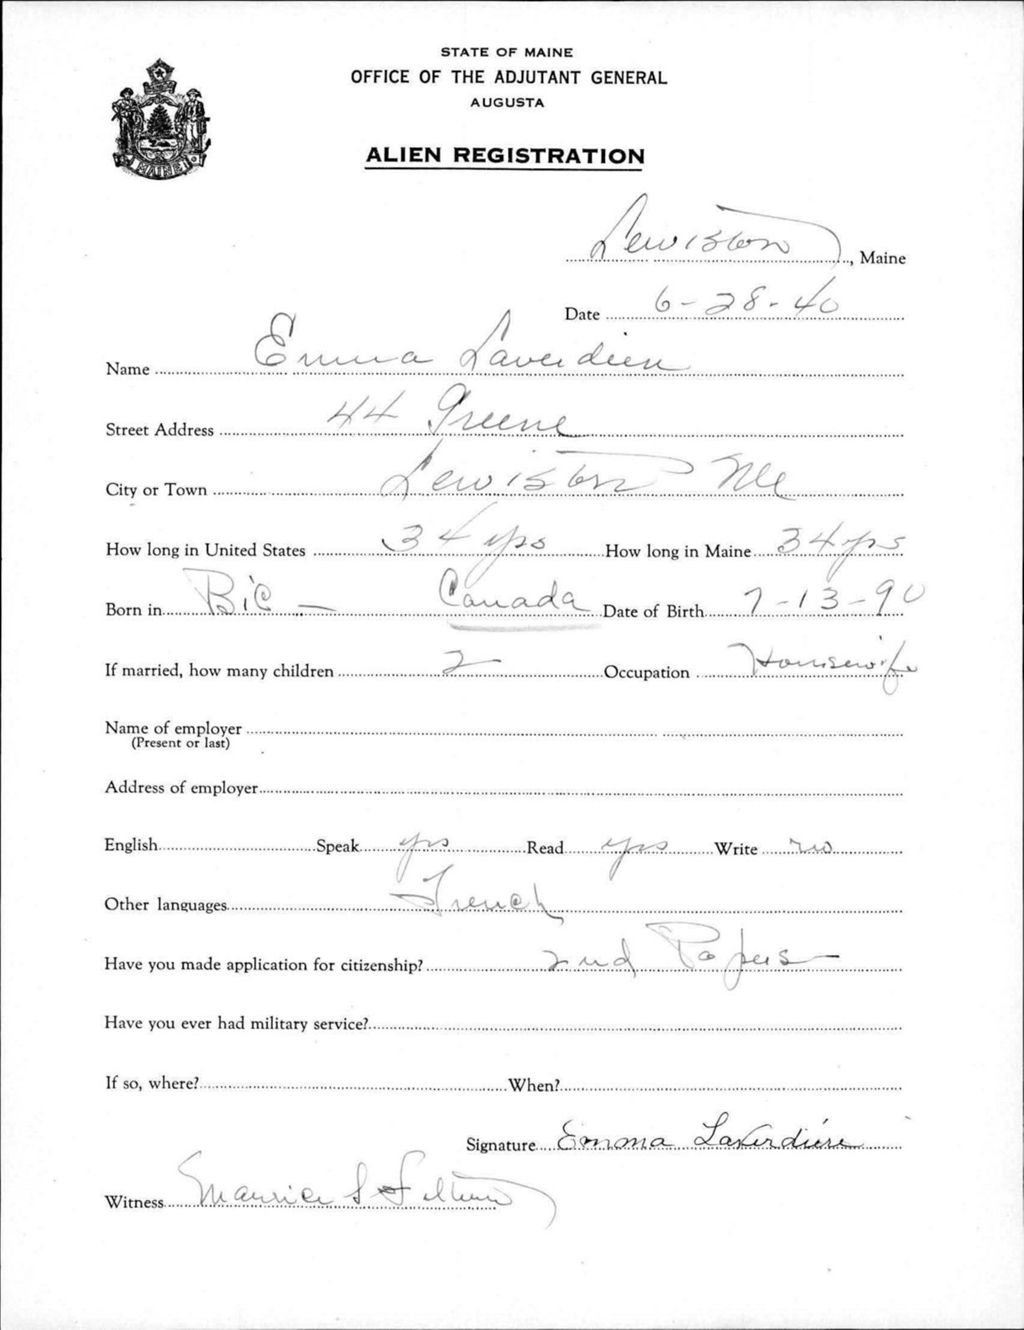 STATE OF MAINE
OFFICE OF THE ADJUTANT GENERAL
AUGUSTA
ALIEN REGISTRATION
MAINE
Lewiston, Maine
Date 6-28-40
Name Emma Laverdiere
Street Address 44 Greene
City or Town Lewiston Me
How long in United States 34 yrs How long in Maine 34 yrs
Born in Bic - Canada Date of Birth 7-13-90
If married, how many children 2 Occupation Housewife
Name of employer
(Present or last)
Address of employer
English Speak yes Read yes Write no
Other languages French
Have you made application for citizenship? 2nd Papers
Have you ever had military service?
If so, where? When?
Signature Emma Laverdiére
Witness Maurice